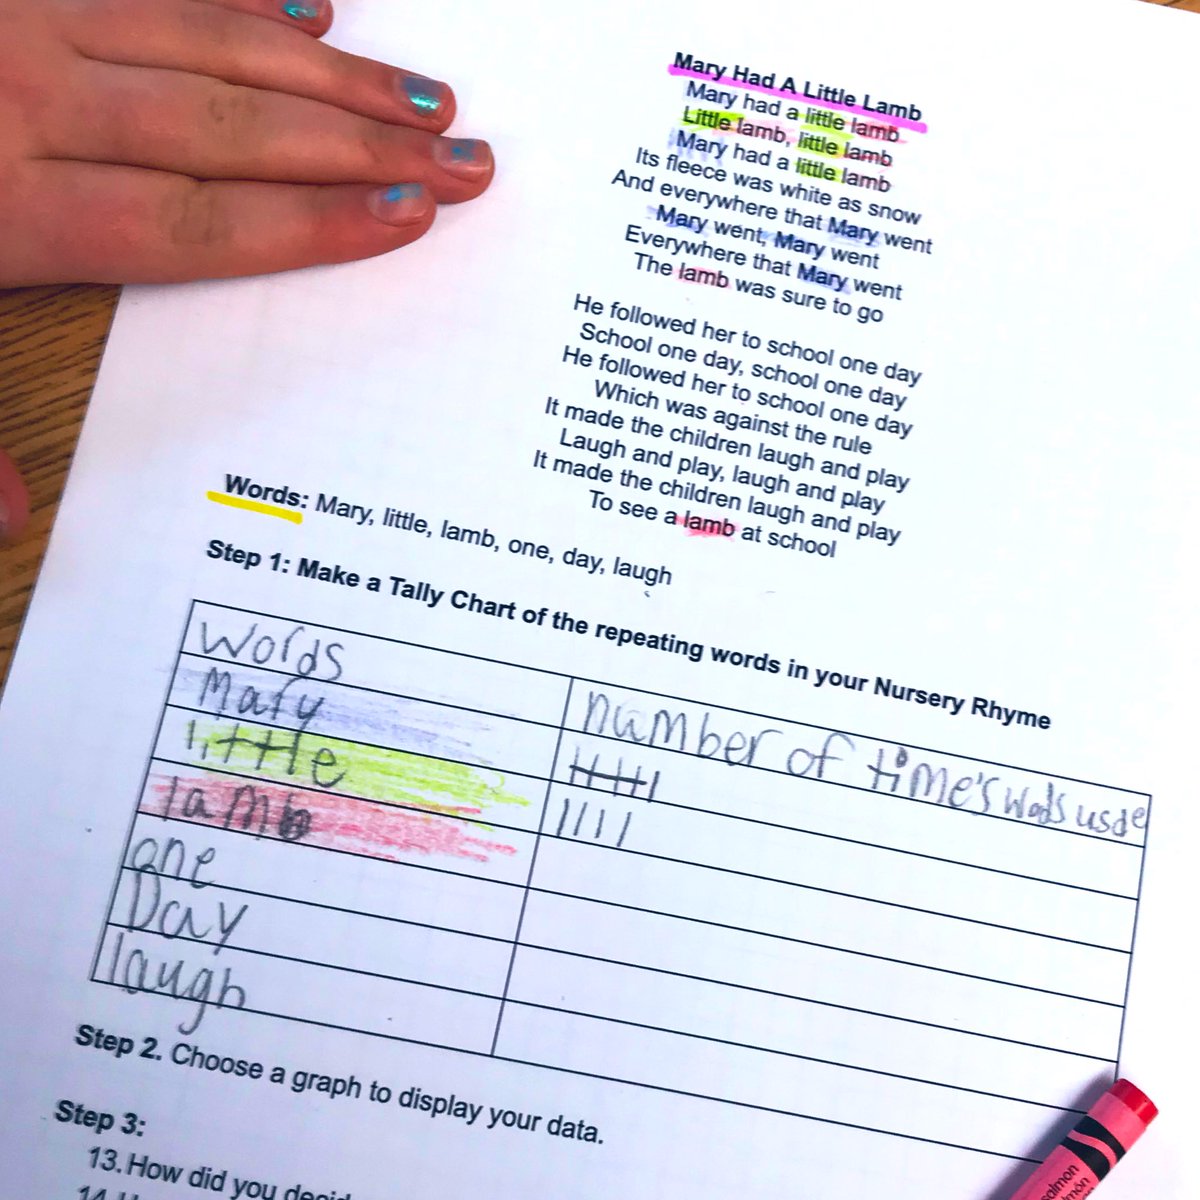 Mary Had A Little Lamb
Mary had a little lamb
Little lamb, little lamb
Mary had a little lamb
Its fleece was white as snow
And everywhere that Mary went
Mary went, Mary went
Everywhere that Mary went
The lamb was sure to go
He followed her to school one day
School one day, school one day
He followed her to school one day
Which was against the rule
It made the children laugh and play
Laugh and play, laugh and play
It made the children laugh and play
To see a lamb at school
Words: Mary, little, lamb, one, day, laugh
Step 1: Make a Tally Chart of the repeating words in your Nursery Rhyme
words number of time's words usde
Mary
little
lamb
one
Day
laugh
Step 2. Choose a graph to display your data.
Step 3:
13. How did you
14.